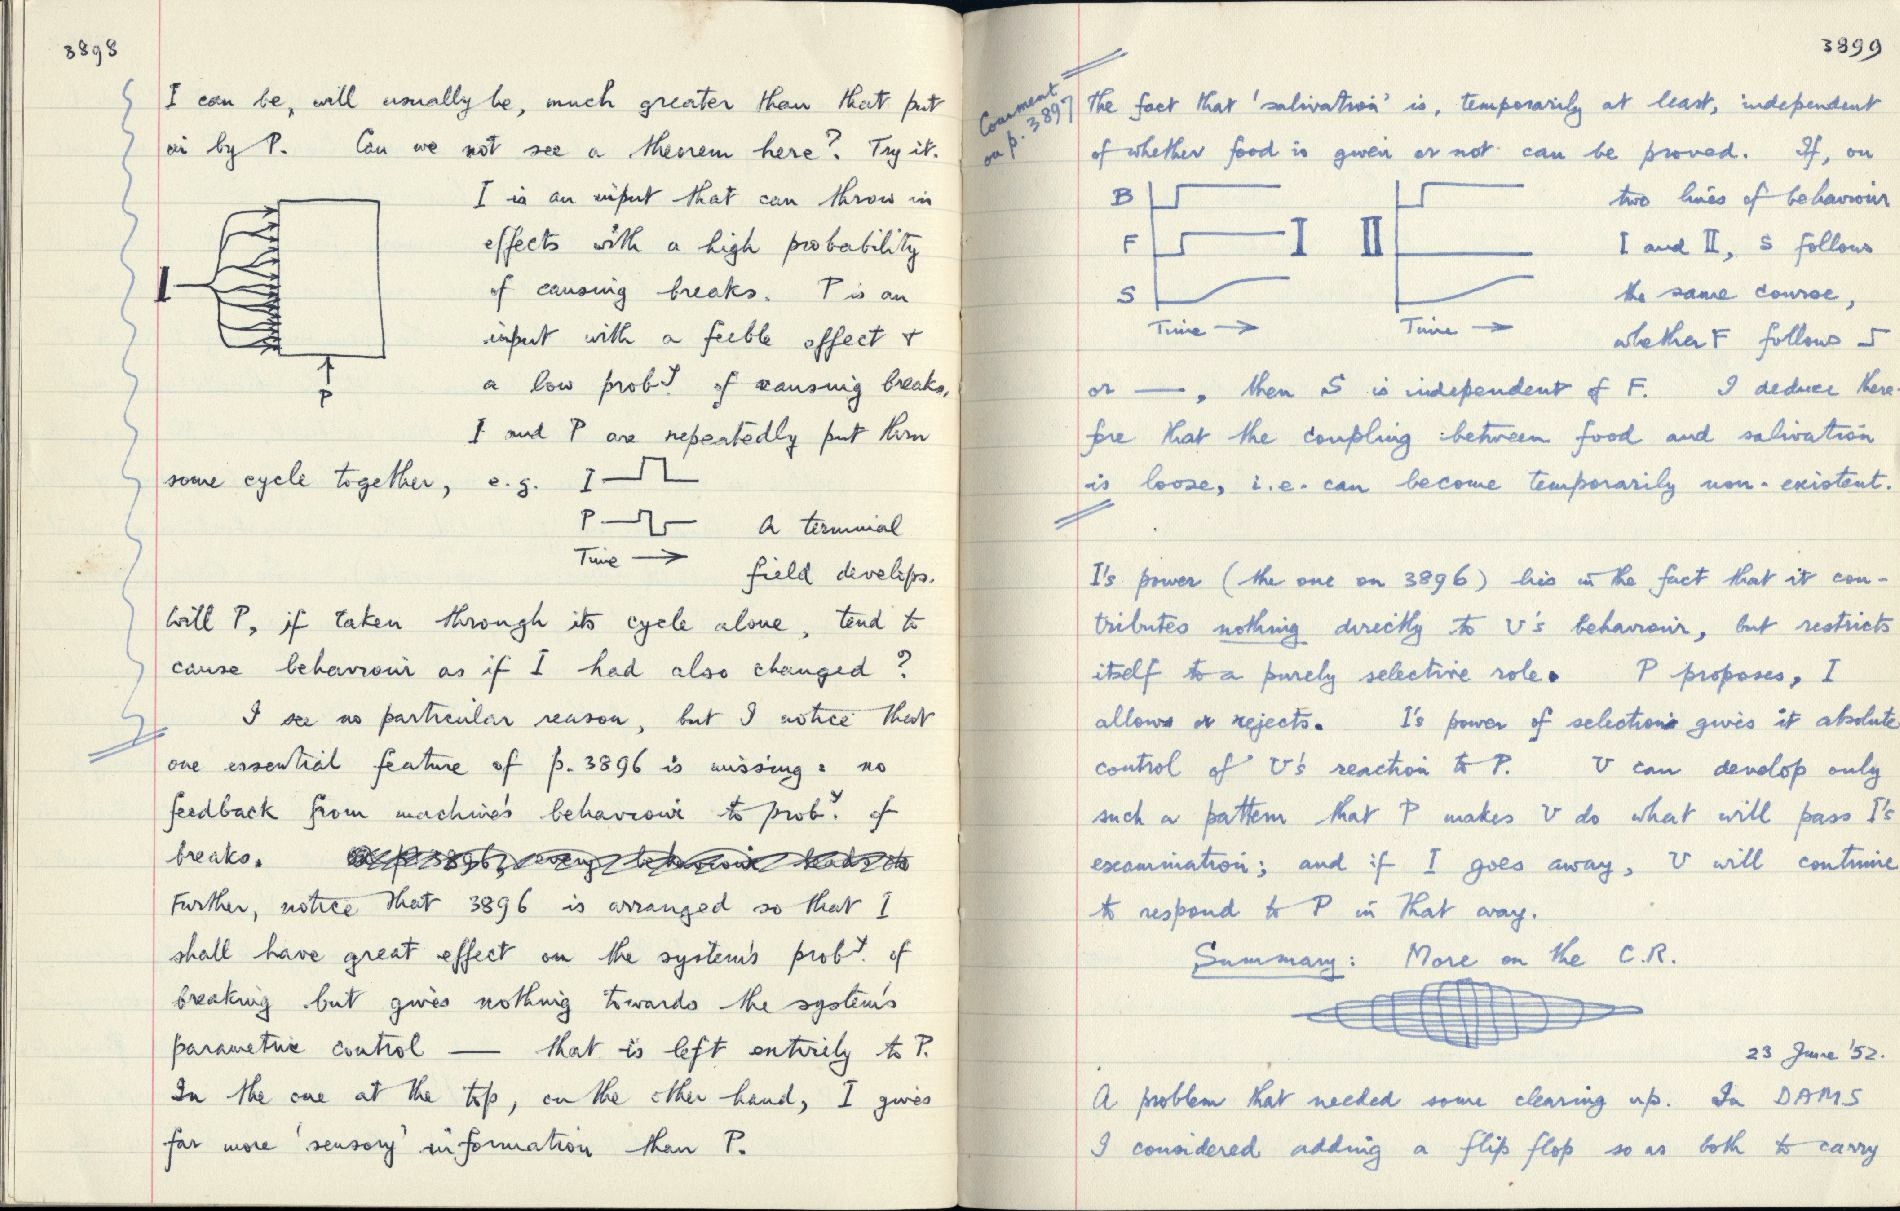 3898
I can be, will usually be, much greater than that put
in by P. Can we not see a theorem here? Try it.
I is an input that can throw in
effects with a high probability
of causing breaks. P is an
input with a feeble effect +
a low proby. of causing breaks.
I
P
I and P are repeatedly put thru
some cycle together, e.g. I
P
A terminal
Time →
field develops.
Will P, if taken through its cycle alone, tend to
cause behaviour as if I had also changed?
I see no particular reason, but I notice that
one essential feature of p. 3896 is missing: no
feedback from machine's behaviour to proby. of
breaks. p 3896, every behaviour leads to
Further, notice that 3896 is arranged so that I
shall have great effect on the system's proby. of
breaking but gives nothing towards the system's
parametric control — that is left entirely to P.
In the one at the top, on the other hand, I gives
far more 'sensory' information than P.
3899
Comment
on p. 3897
The fact that 'salivation' is, temporarily at least, independent
of whether food is given or not can be proved. If, on
B
F
S
I II
Time → Time →
two lines of behaviour
I and II, S follows
the same course,
whether F follows
or —, then S is independent of F. I deduce there-
fore that the coupling between food and salivation
is loose, i.e. can become temporarily non-existent.
I's power (the one on 3896) lies in the fact that it con-
tributes nothing directly to V's behaviour, but restricts
itself to a purely selective role. P proposes, I
allows or rejects. I's power of selection gives it absolute
control of V's reaction to P. V can develop only
such a pattern that P makes V do what will pass I's
examination; and if I goes away, V will continue
to respond to P in that way.
Summary: More on the C.R.
23 June '52.
A problem that needed some clearing up. In DAMS
I considered adding a flip flop so as both to carry